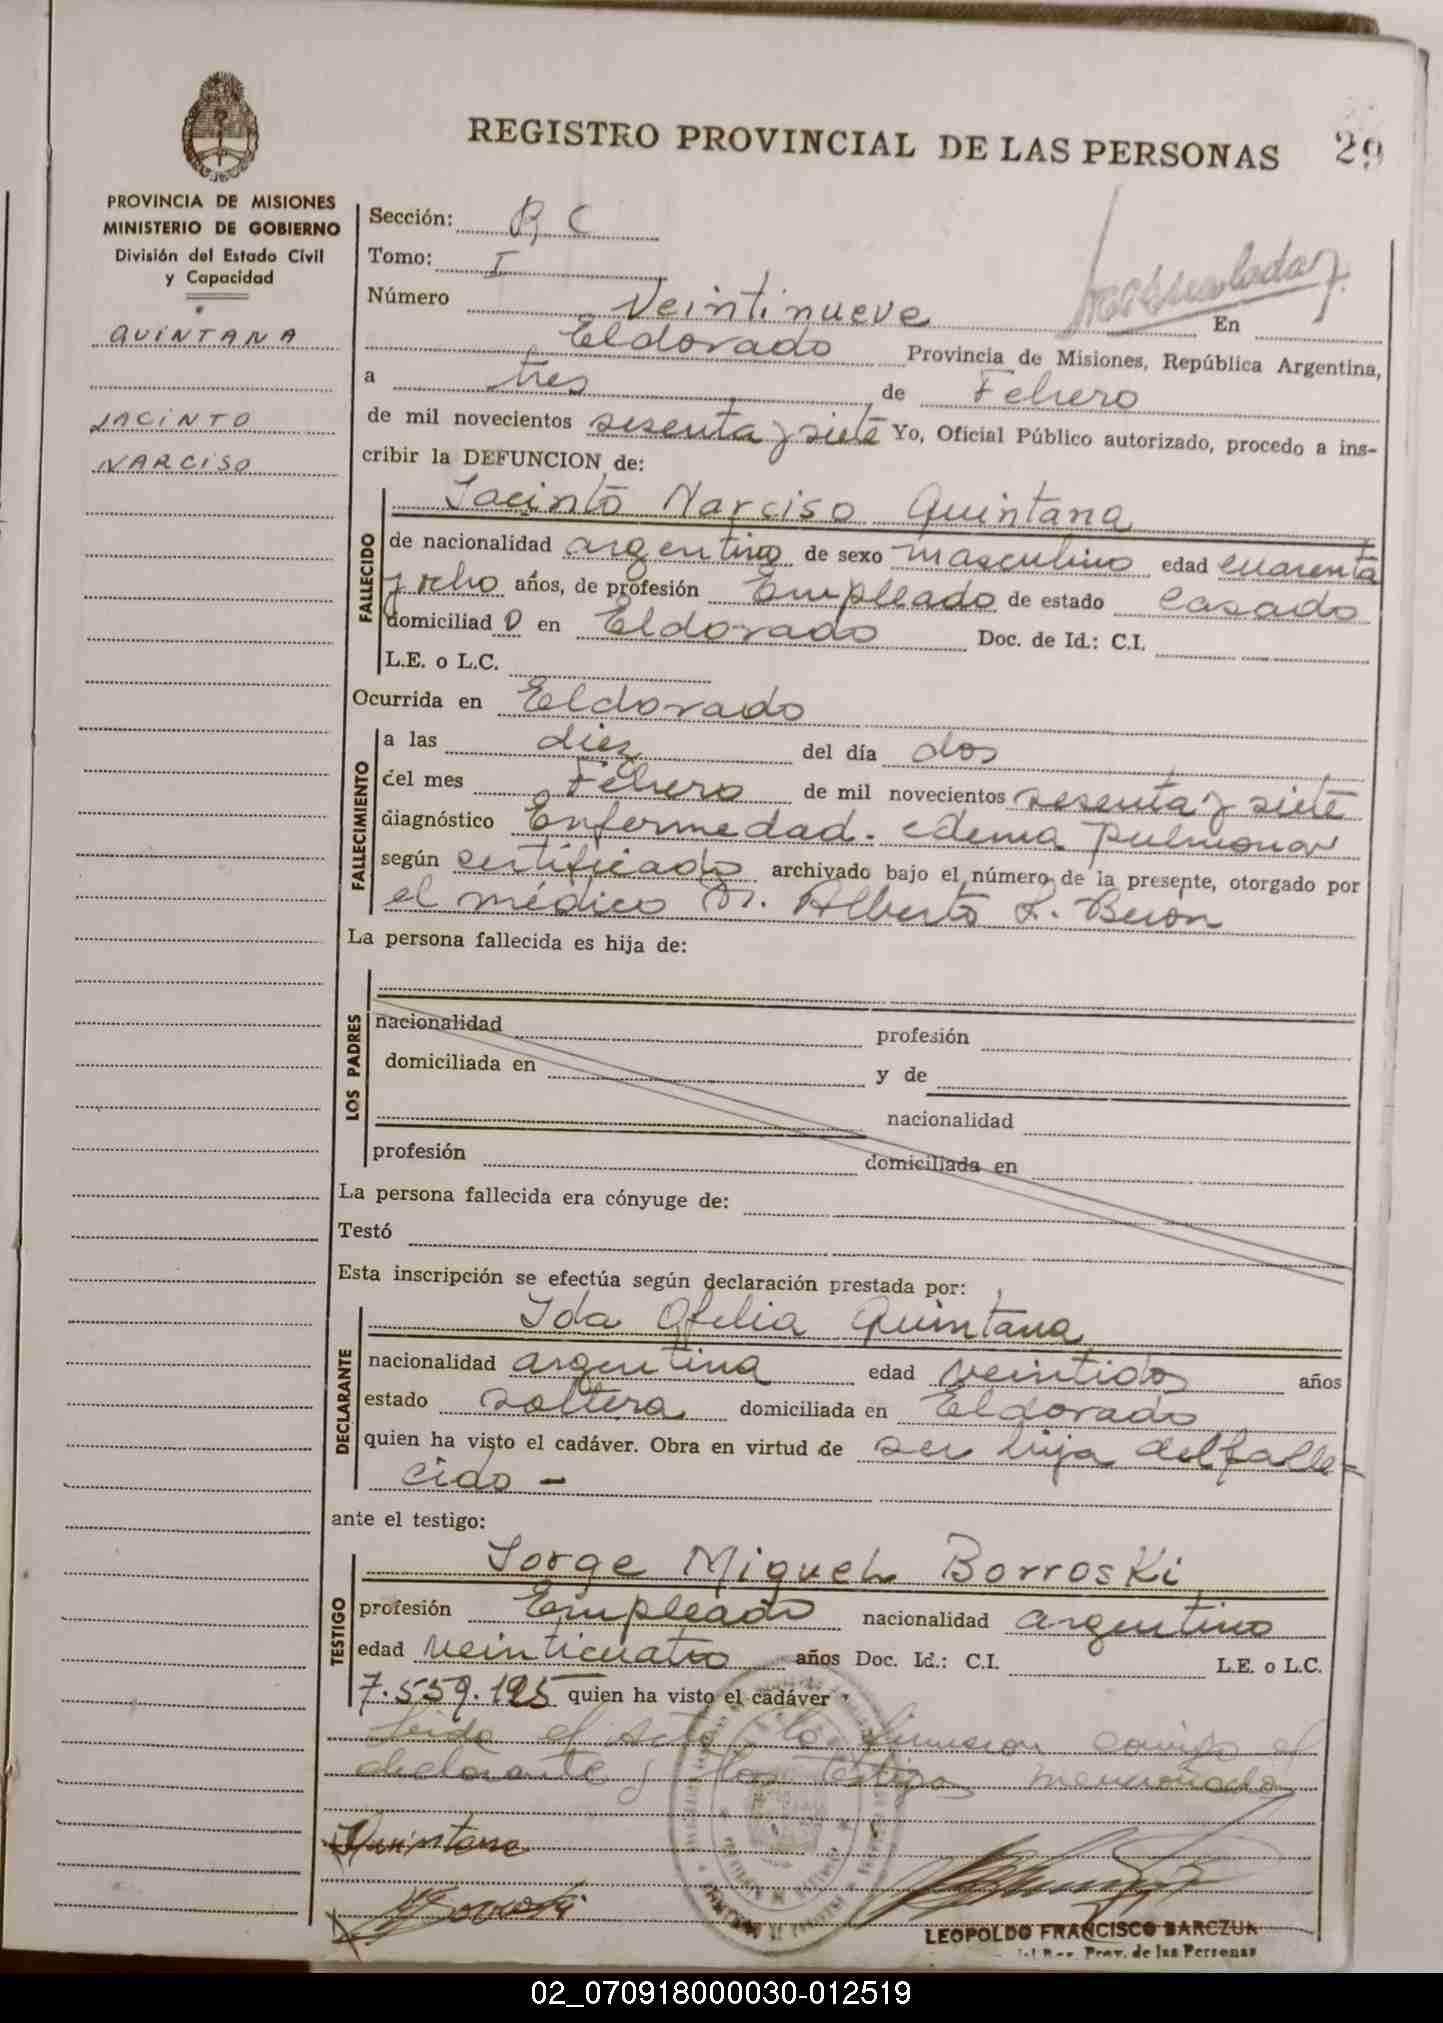 REGISTRO PROVINCIAL DE LAS PERSONAS
29
PROVINCIA DE MISIONES
MINISTERIO DE GOBIERNO
División del Estado Civil
y Capacidad
QUINTANA
JACINTO
NARCISO
Sección: R C
Tomo: I
Número Veintinueve En
Eldorado Provincia de Misiones, República Argentina,
a tres de Febrero
de mil novecientos sesenta y siete Yo, Oficial Público autorizado, procedo a ins-
cribir la DEFUNCION de:
FALLECIDO
Jacinto Narciso Quintana
de nacionalidad argentino de sexo masculino edad cuarenta
y ocho años, de profesión Empleado de estado casado
domiciliad o en Eldorado Doc. de Id.: C.I.
L.E. o L.C.
Ocurrida en Eldorado
FALLECIMIENTO
a las diez del día dos
del mes Febrero de mil novecientos sesenta y siete
diagnóstico Enfermedad. edema pulmonar
según certificado archivado bajo el número de la presente, otorgado por
el médico Dr. Alberto L. Beron
La persona fallecida es hija de:
LOS PADRES
nacionalidad profesión
domiciliada en y de
nacionalidad
profesión domiciliada en
La persona fallecida era cónyuge de:
Testó
Esta inscripción se efectúa según declaración prestada por:
DECLARANTE
Ida Ofelia Quintana
nacionalidad argentina edad veintidos años
estado soltera domiciliada en Eldorado
quien ha visto el cadáver. Obra en virtud de ser hija del falle-
cido -
ante el testigo:
TESTIGO
Jorge Miguel Borroski
profesión Empleado nacionalidad argentino
edad veinticuatro años Doc. Id.: C.I. L.E. o L.C.
7.559.195 quien ha visto el cadáver
Leida el acta la firman el
declarante y testigo mencionado
Quintana
Borroski
LEOPOLDO FRANCISCO BARCZUK
Prov. de las Personas
02_070918000030-012519